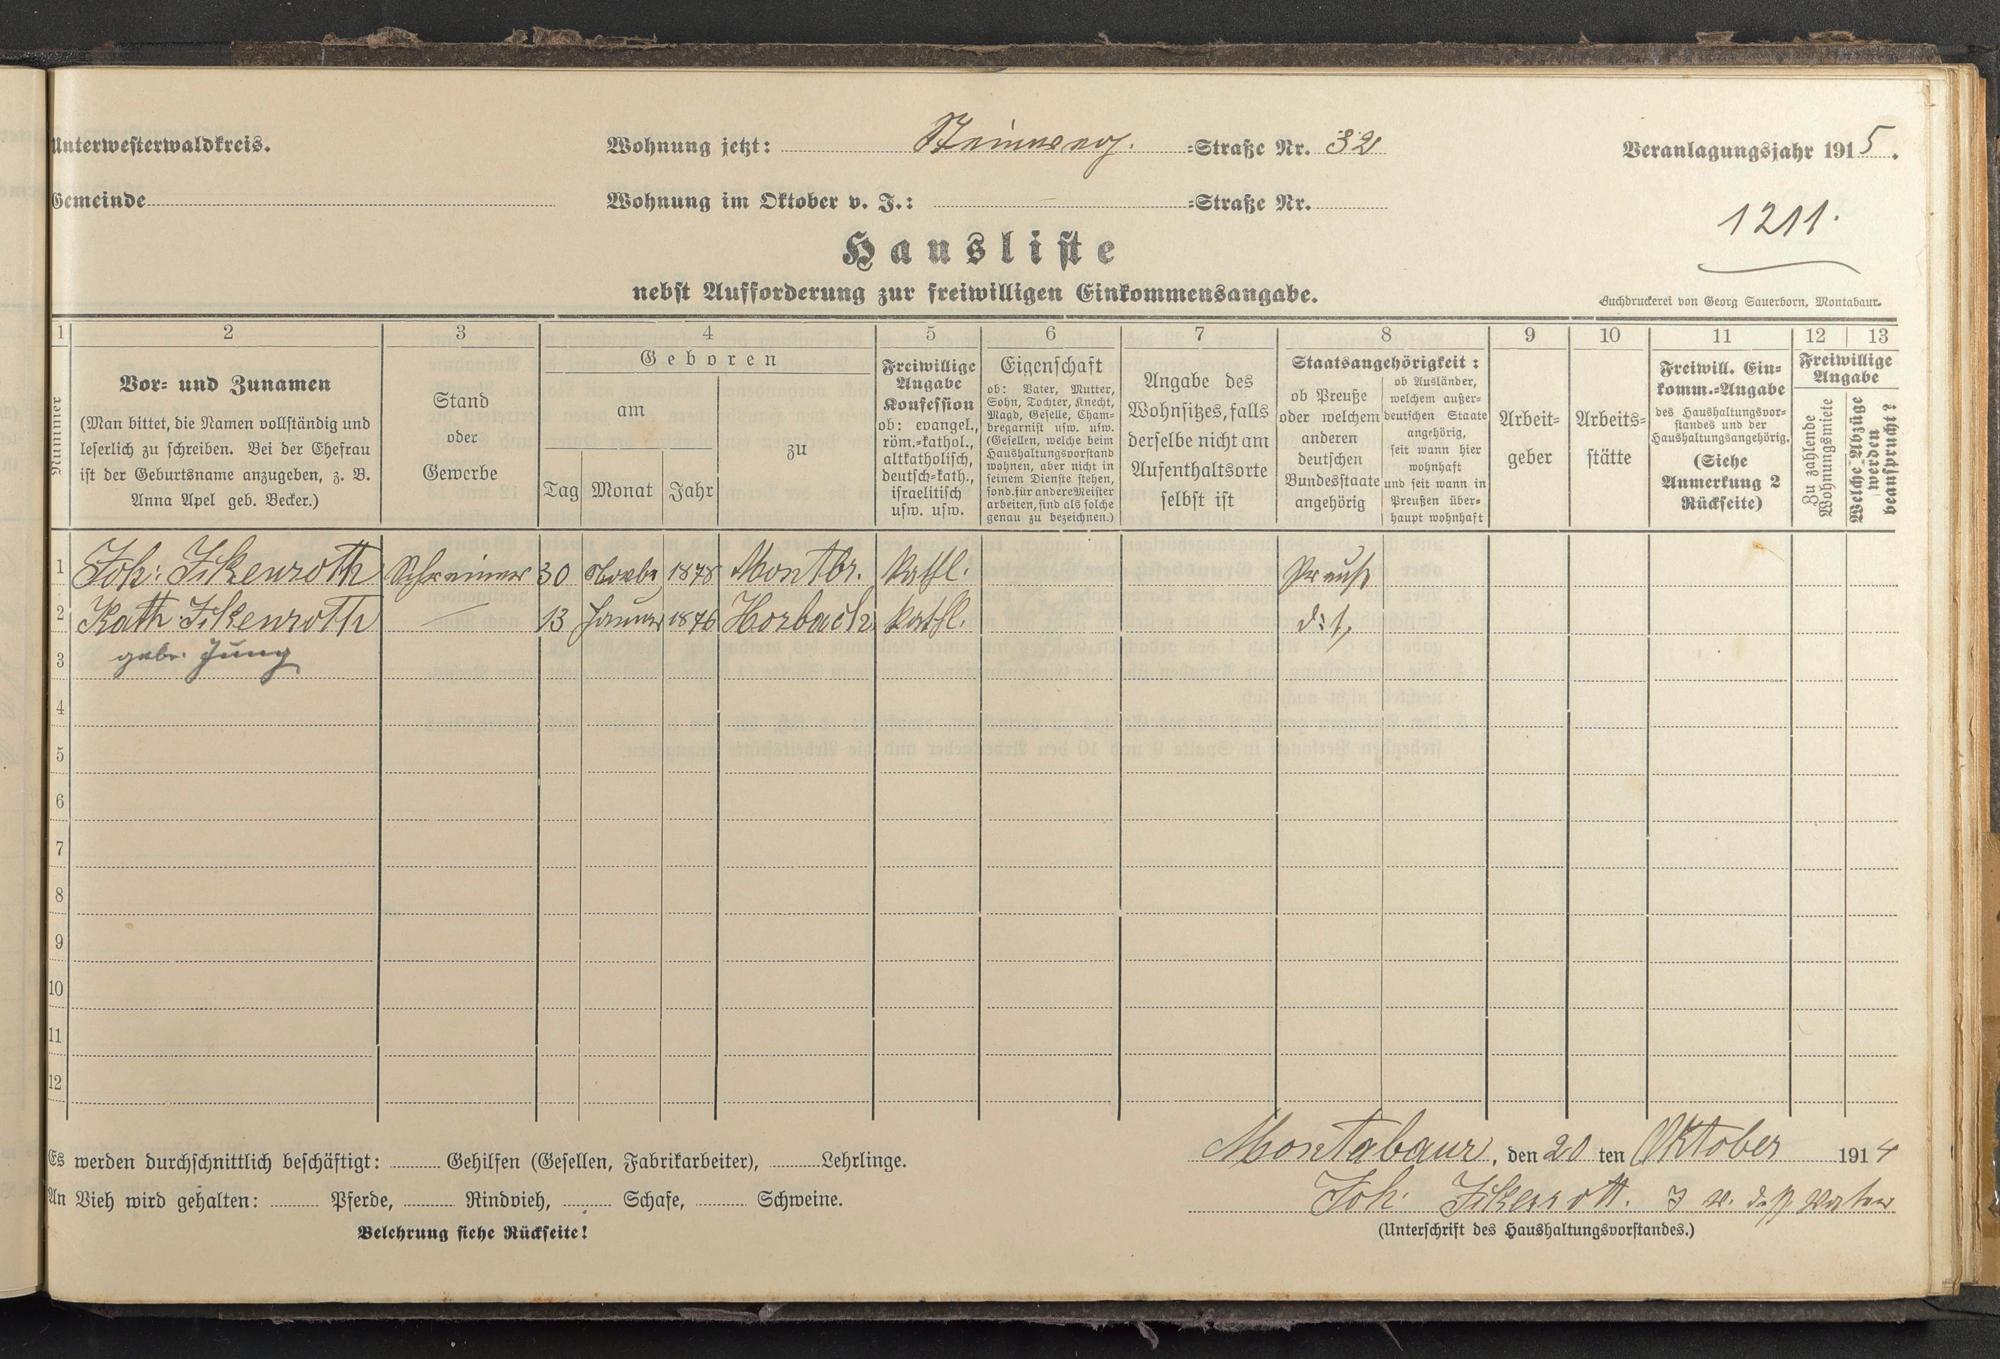 Unterwesterwaldkreis.
Wohnung jetzt: Steinweg. =Straße Nr. 32
Veranlagungsjahr 1915.
Gemeinde
Wohnung im Oktober v. J.: =Straße Nr.
1211.
Hausliste
nebst Aufforderung zur freiwilligen Einkommensangabe.
Buchdruckerei von Georg Sauerborn, Montabaur.
1 2 3 4 5 6 7 8 9 10 11 12 13
Nummer
Vor= und Zunamen
(Man bittet, die Namen vollständig und
leserlich zu schreiben. Bei der Ehefrau
ist der Geburtsname anzugeben, z. B.
Anna Apel geb. Becker.)
Stand
oder
Gewerbe
Geboren
am
Tag Monat Jahr
zu
Freiwillige
Angabe
Konfession
ob: evangel.,
röm.=kathol.,
altkatholisch,
deutsch=kath.,
israelitisch
usw. usw.
Eigenschaft
ob: Vater, Mutter,
Sohn, Tochter, Knecht,
Magd, Geselle, Cham=
bregarnist usw. usw.
(Gesellen, welche beim
Haushaltungsvorstand
wohnen, aber nicht in
seinem Dienste stehen,
sond. für andere Meister
arbeiten, sind als solche
genau zu bezeichnen.)
Angabe des
Wohnsitzes, falls
derselbe nicht am
Aufenthaltsorte
selbst ist
Staatsangehörigkeit:
ob Preuße
oder welchem
anderen
deutschen
Bundesstaate
angehörig
ob Ausländer,
welchem außer=
deutschen Staate
angehörig,
seit wann hier
wohnhaft
und seit wann in
Preußen über=
haupt wohnhaft
Arbeit=
geber
Arbeits=
stätte
Freiwill. Ein=
komm.=Angabe
des Haushaltungsvor=
standes und der
Haushaltungsangehörig.
(Siehe
Anmerkung 2
Rückseite)
Freiwillige
Angabe
Zu zahlende
Wohnungsmiete
Welche Abzüge
werden
beansprucht?
1 Joh: Fikenroth Schreiner 30 Novbr 1878 Montbr. kathl. Preuße
2 Kath Fikenroth — 13 Januar 1876 Horbach kathl.
3 gebr. Jung
4
5
6
7
8
9
10
11
12
Es werden durchschnittlich beschäftigt: Gehilfen (Gesellen, Fabrikarbeiter), Lehrlinge.
An Vieh wird gehalten: Pferde, Rindvieh, Schafe, Schweine.
Belehrung siehe Rückseite!
Montabaur, den 20 ten Oktober 1914
Joh. Fikenroth.
(Unterschrift des Haushaltungsvorstandes.)